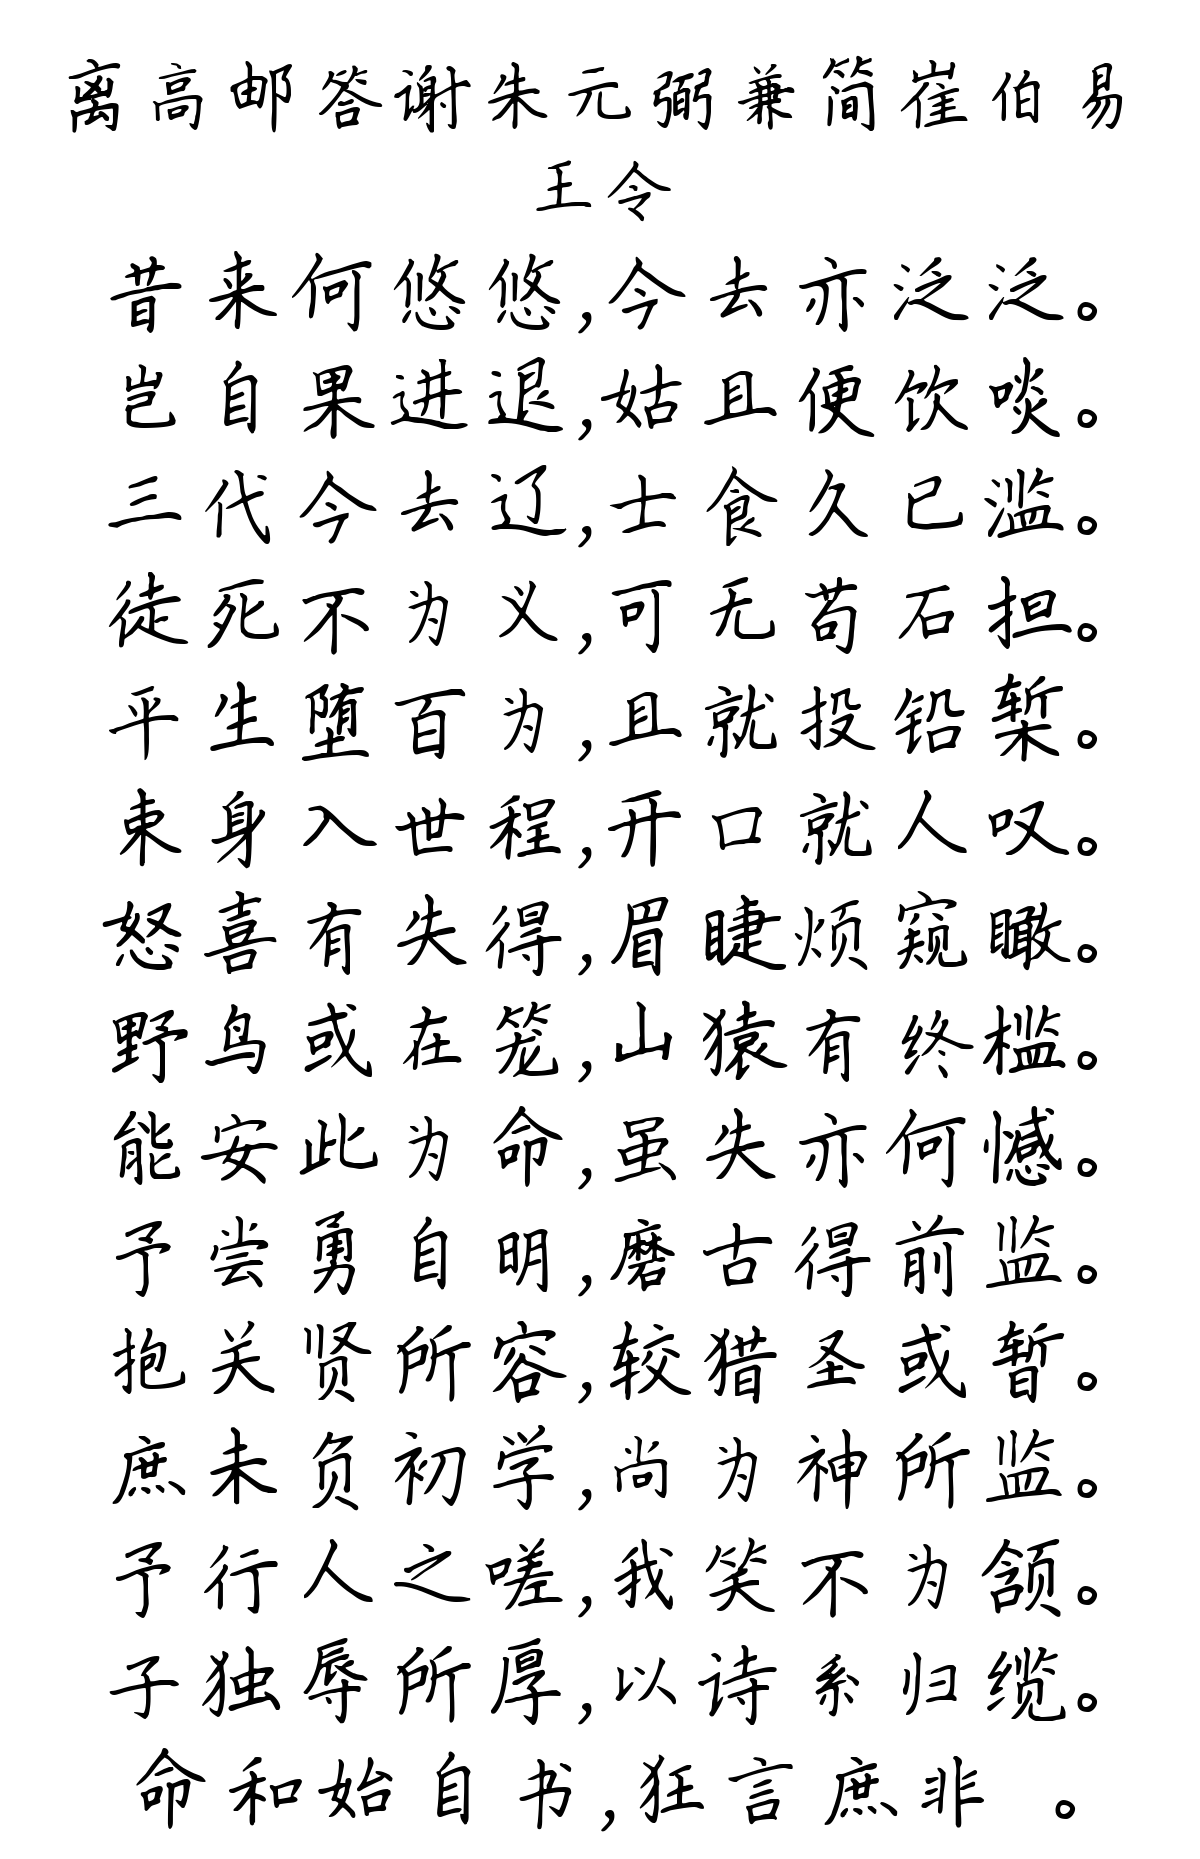 离高邮答谢朱元弼兼简崔伯易
王令
昔来何悠悠,今去亦泛泛。
岂自果进退,姑且便饮啖。
三代今去辽,士食久已滥。
徒死不为义,可无苟石担。
平生堕百为,且就投铅椠。
束身入世程,开口就人叹。
怒喜有失得,眉睫烦窥瞰。
野鸟或在笼,山猿有终槛。
能安此为命,虽失亦何憾。
予尝勇自明,磨古得前监。
抱关贤所容,较猎圣或暂。
庶未负初学,尚为神所监。
予行人之嗟,我笑不为颔。
子独辱所厚,以诗系归缆。
命和始自书,狂言庶非 。